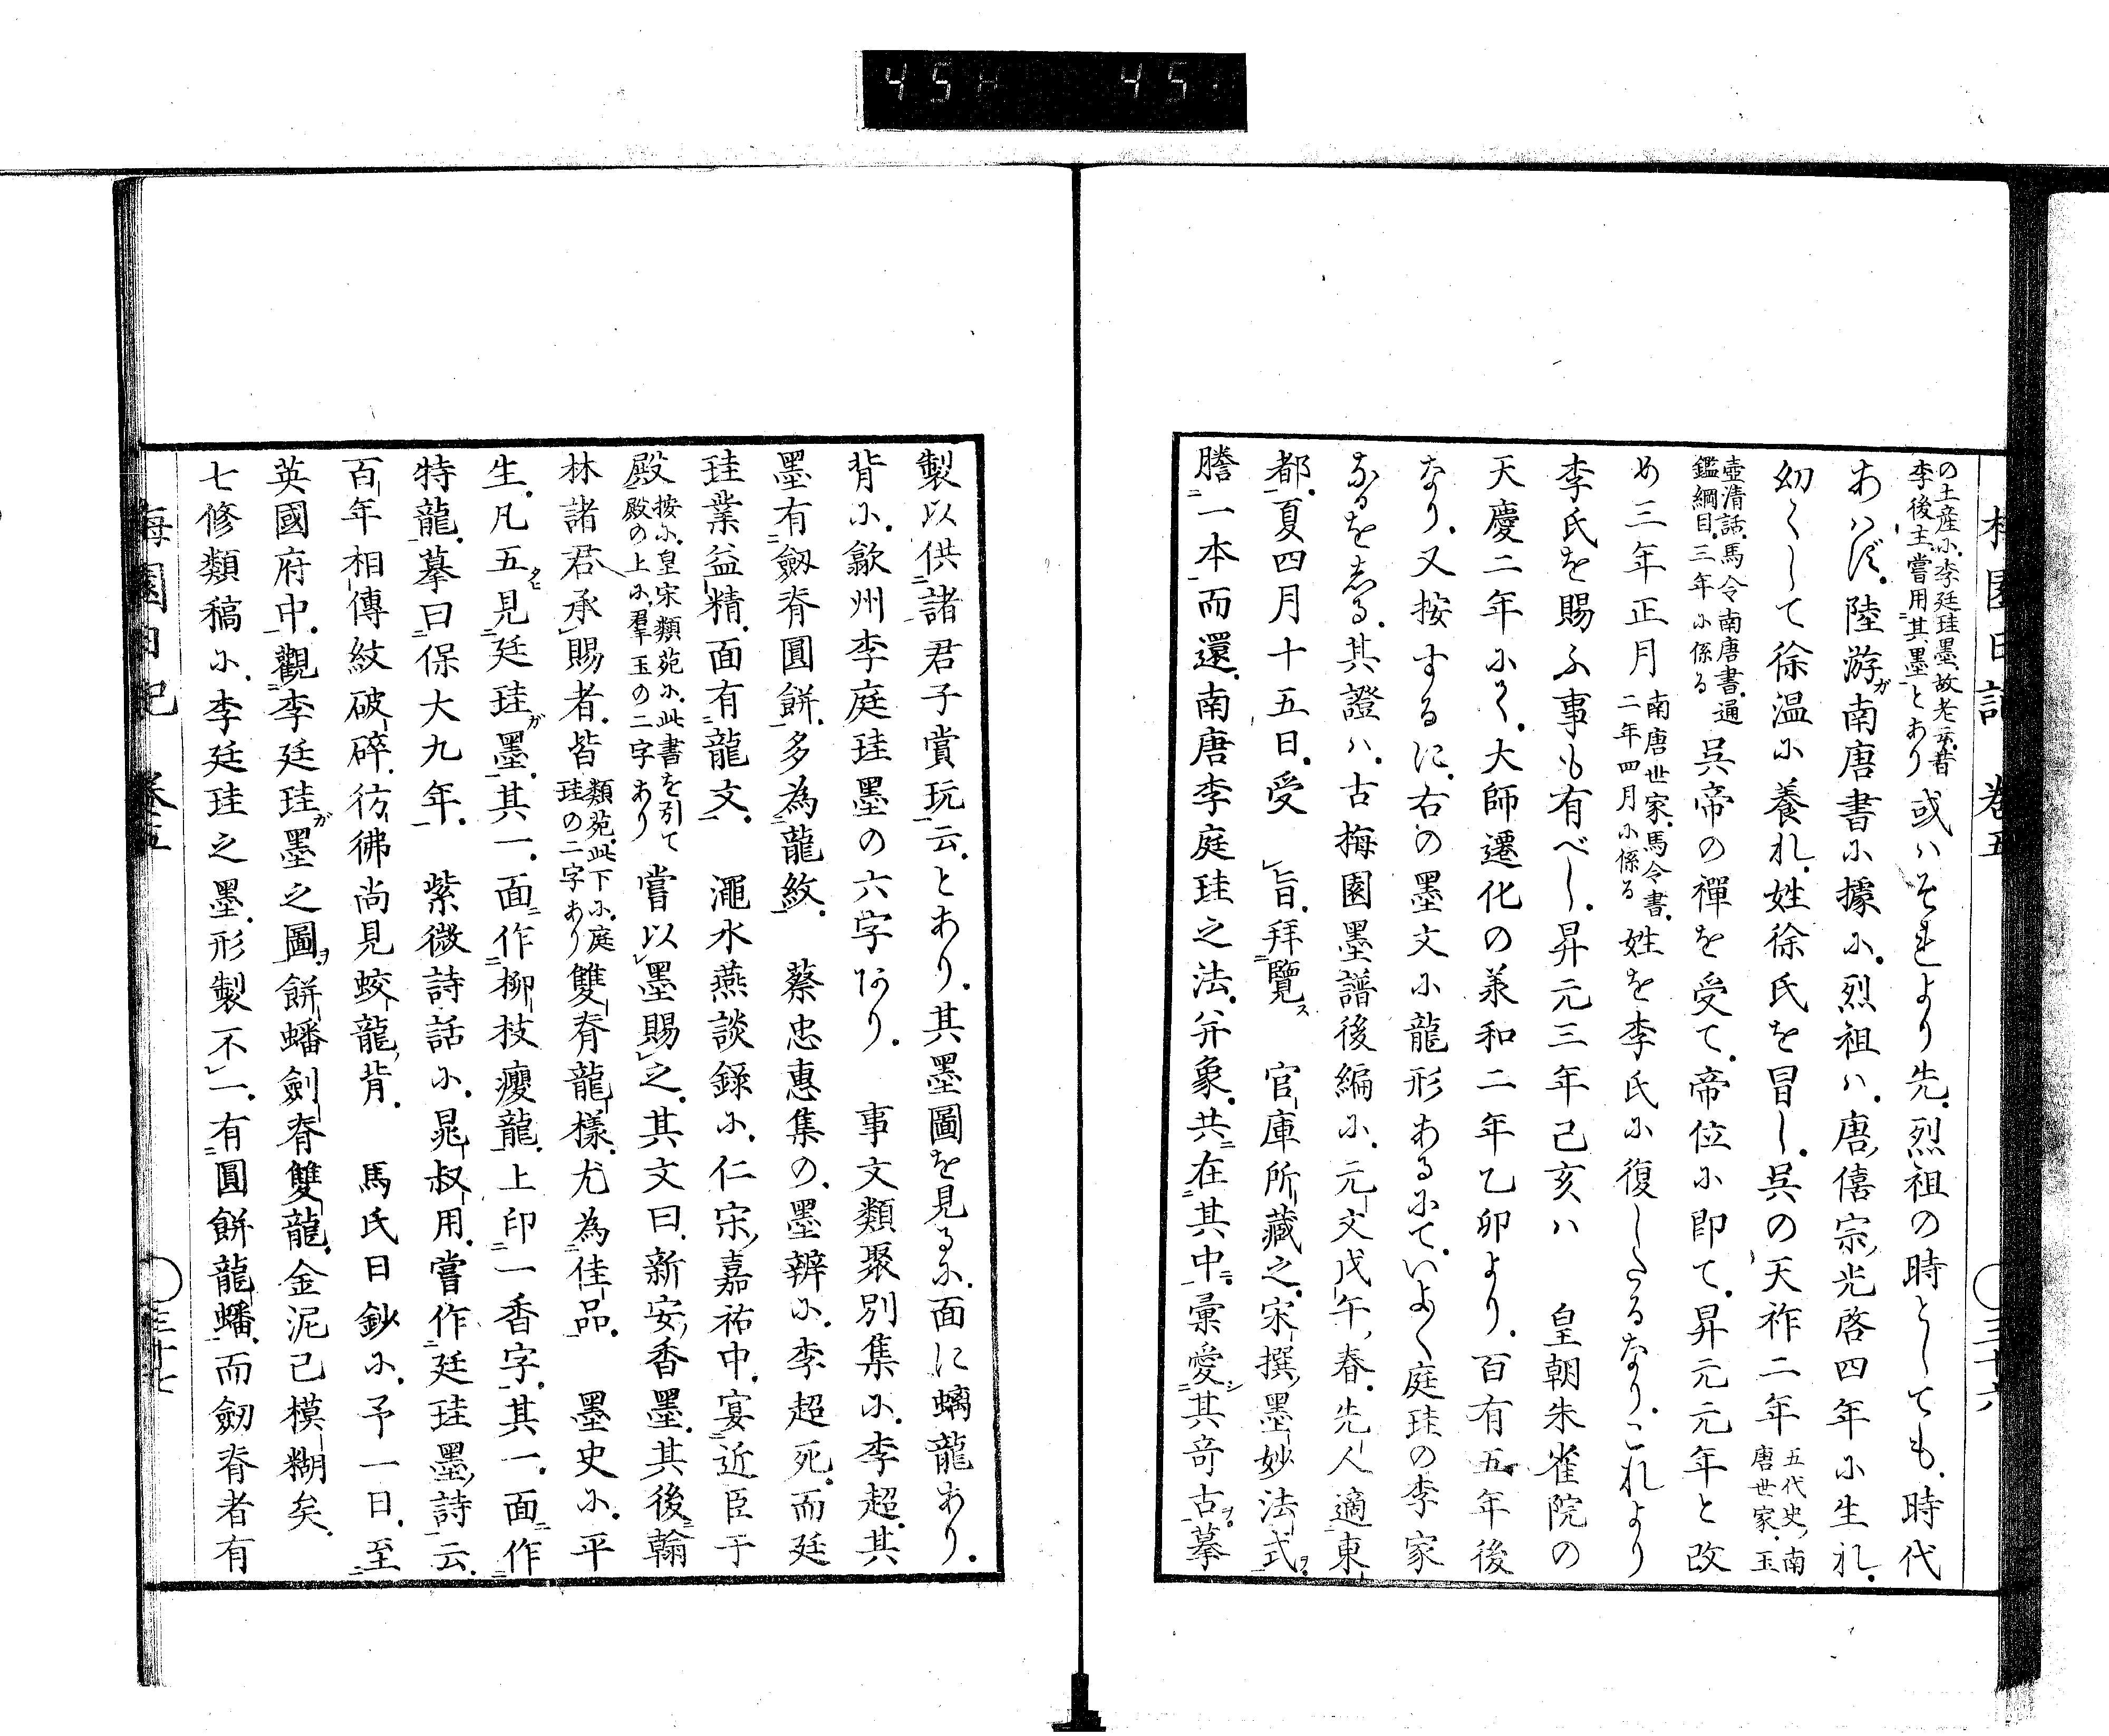 の土産に、李廷珪墨、故老云、昔
李後主嘗用其墨とあり
或ハそれより先、烈祖の時としても、時代
あハず、陸游ガ南唐書に據に、烈祖ハ、唐、僖宗、光啓四年に生れ、
幼くして徐温に養れ、姓徐氏を冒し、呉の天祚二年
五代史、南
唐世家、玉
壺清話、馬令南唐書、通
鑑綱目、三年に係る
呉帝の禪を受て、帝位に即て、昇元元年と改
め三年正月
南唐世家、馬令書、
二年四月に係る
姓を李氏に復したるなり、これより
李氏を賜ふ事も有べし、昇元三年己亥ハ 皇朝朱雀院の
天慶二年にて、大師遷化の羕和二年乙卯より、百有五年後
なり、又按するに、右の墨文に龍形あるにて、いよ〳〵庭珪の李家
なるを志る、其證ハ、古梅園墨譜後編に、元文戊午、春、先人適東
都、夏四月十五日、受 旨、拜覽ス 官庫所藏之、宋撰、墨妙法式ヲ、
謄一本而還、南唐李庭珪之法、并象、共在其中、彙愛シ其竒古ヲ、摹
梅園日記 卷五 〇三十六
製以供諸君子賞玩云、とあり、其墨圖を見るに、面に螭龍あり、
背に、歙州李庭珪墨の六字あり、 事文類聚別集に、李超、其
墨有劔脊圓餅、多為龍紋、 蔡忠惠集の、墨辨に、李超死、而廷
珪業益精、面有龍文、 澠水燕談錄に、仁宗、嘉祐中、宴近臣于
殿
按に、皇宋類苑に、此書を引て
殿の上に、羣玉の二字あり
嘗以墨賜之、其文曰、新安、香墨、其後翰
林諸君承賜者、皆
類苑、此下に、庭
珪の二字あり
雙脊龍樣、尤為佳品、 墨史に、平
生、凡五タヒ見廷珪ガ墨、其一、面作柳枝瘦龍、上印一香字、其一、面作
特龍、摹曰保大九年、 紫微詩話に、晁叔用、嘗作廷珪墨、詩云、
百年相傳紋破碎、彷彿尚見蛟龍、背、 馬氏日鈔に、予一日、至
英國府中、觀李廷珪ガ墨之圖ヲ、餅蟠劍脊雙龍、金泥已模糊矣、
七修類稿に、李廷珪之墨、形製不一、有圓餅龍蟠、而劔脊者有
梅園日記 卷五 〇三十七